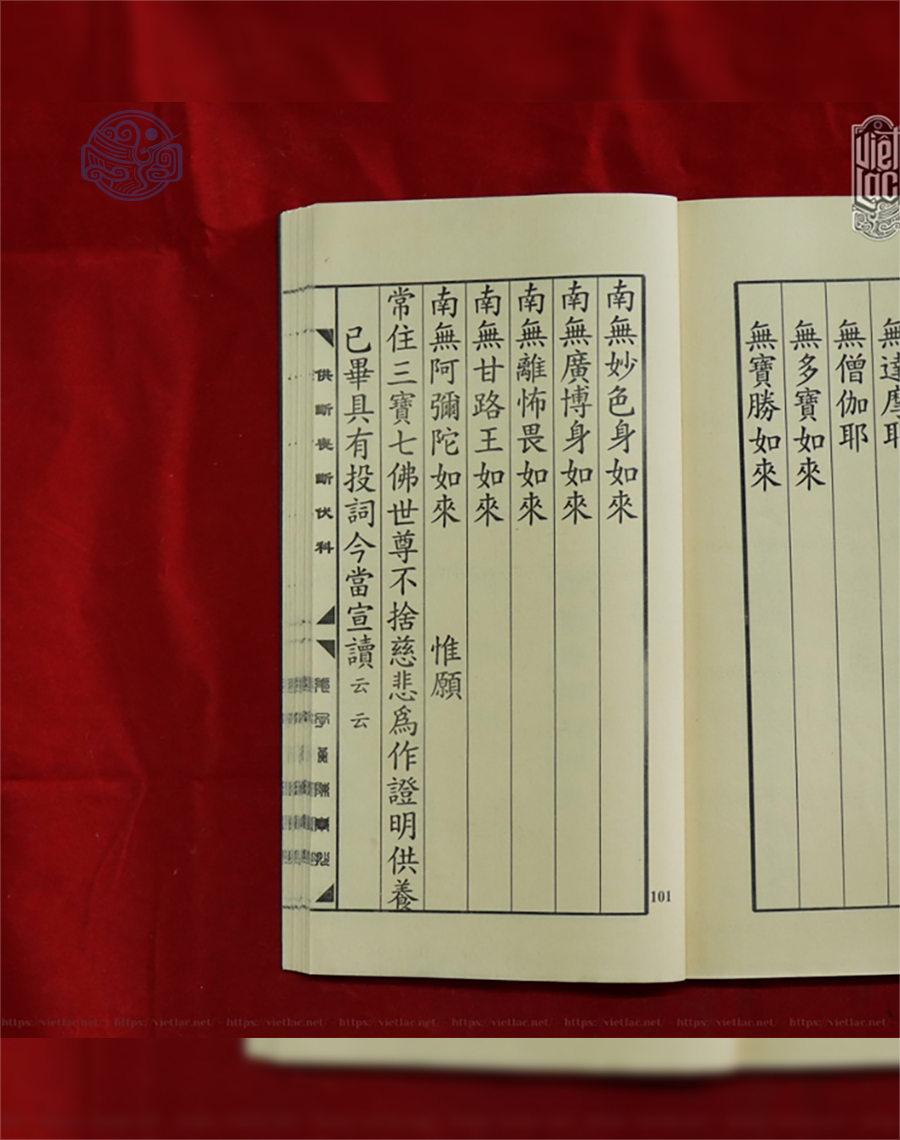 無達摩耶
無僧伽耶
無多寶如來
無寶勝如來
南無妙色身如來
南無廣博身如來
南無離怖畏如來
南無甘路王如來
南無阿彌陀如來 惟願
常住三寶七佛世尊不捨慈悲爲作證明供養
已畢具有投詞今當宣讀云云
供斷喪斷伏科
101
Việt
Lạc
https://vietlac.net/ - https://vietlac.net/ - https://vietlac.net/ - https://vietlac.net/ - https://vietlac.net/ - https://vietlac.net/ - https://vietlac.net/ - https://vietlac.net/